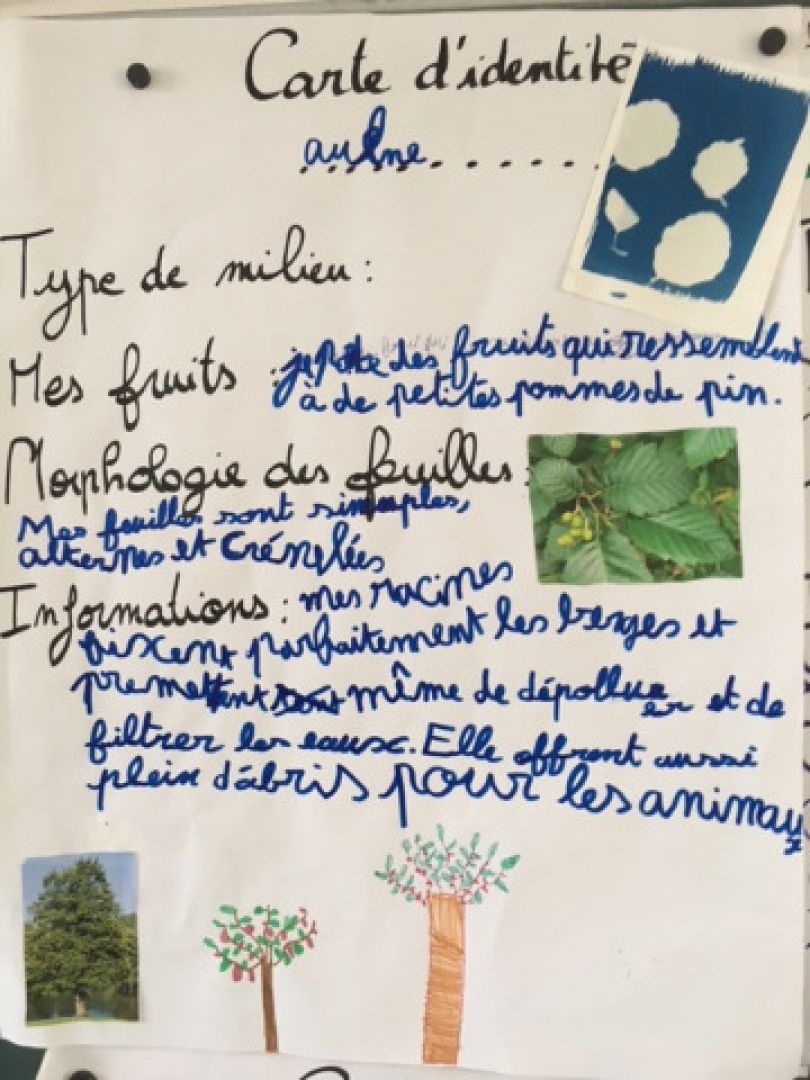 Carte d'identité
aulne . . . . . .
Type de milieu :
Mes fruits : je porte des fruits qui ressemblent
à de petites pommes de pin.
Morphologie des feuilles :
Mes feuilles sont simples,
alternes et crénelées
Informations : mes racines
fixent parfaitement les berges et
premettent même de dépolluer et de
filtrer les eaux. Elle offrent aussi
plein d'abris pour les animaux